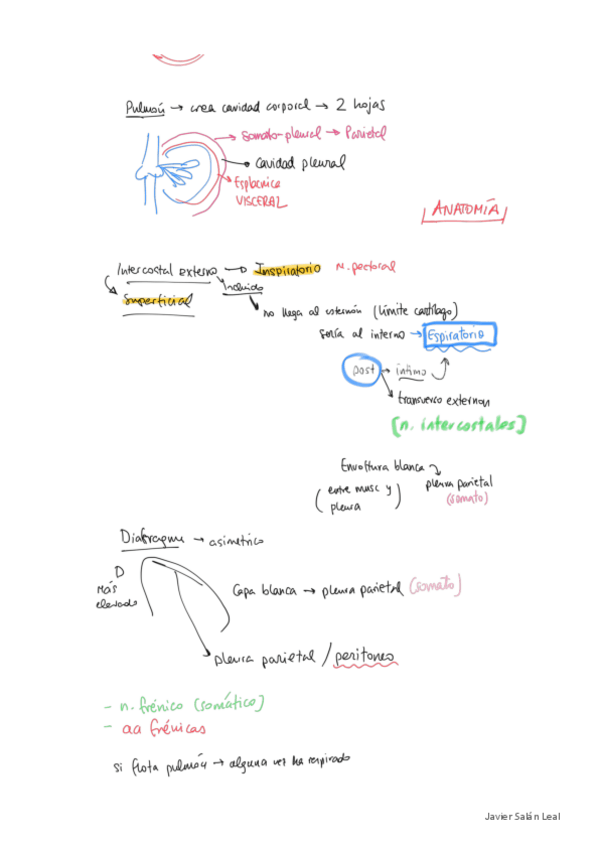 Pulmón → crea cavidad corporal → 2 hojas
Somato-pleural → Parietal
Cavidad pleural
Esplácnica
VISCERAL
ANATOMÍA
Intercostal externo → Inspiratorio M. pectoral
Superficial
no llega al esternón (límite cartílago)
sería al interno → Espiratorio
post → íntimo
transverso externon
[n. intercostales]
Envoltura blanca
(entre musc y pleura) pleura parietal
(somato)
Diafragma → asimétrico
D
Más
elevado
Capa blanca → pleura parietal (somato)
pleura parietal / peritoneo
- n. frénico (somático)
- aa frénicas
si flota pulmón → alguna vez ha respirado
Javier Salán Leal